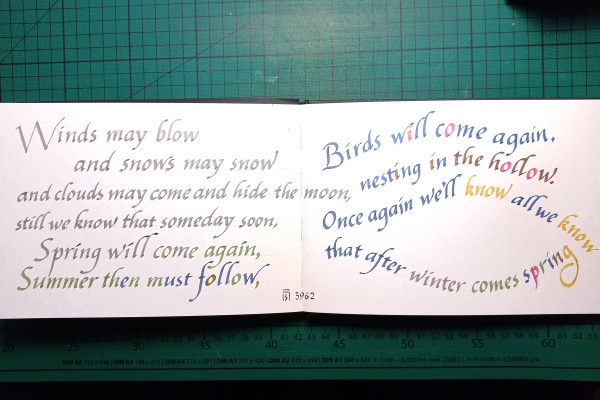 Winds may blow
and snows may snow
and clouds may come and hide the moon,
still we know that someday soon,
Spring will come again,
Summer then must follow,
3962
Birds will come again,
nesting in the hollow.
Once again we'll know all we know
that after winter comes spring
20 25 30 35 40 45 50 55 60